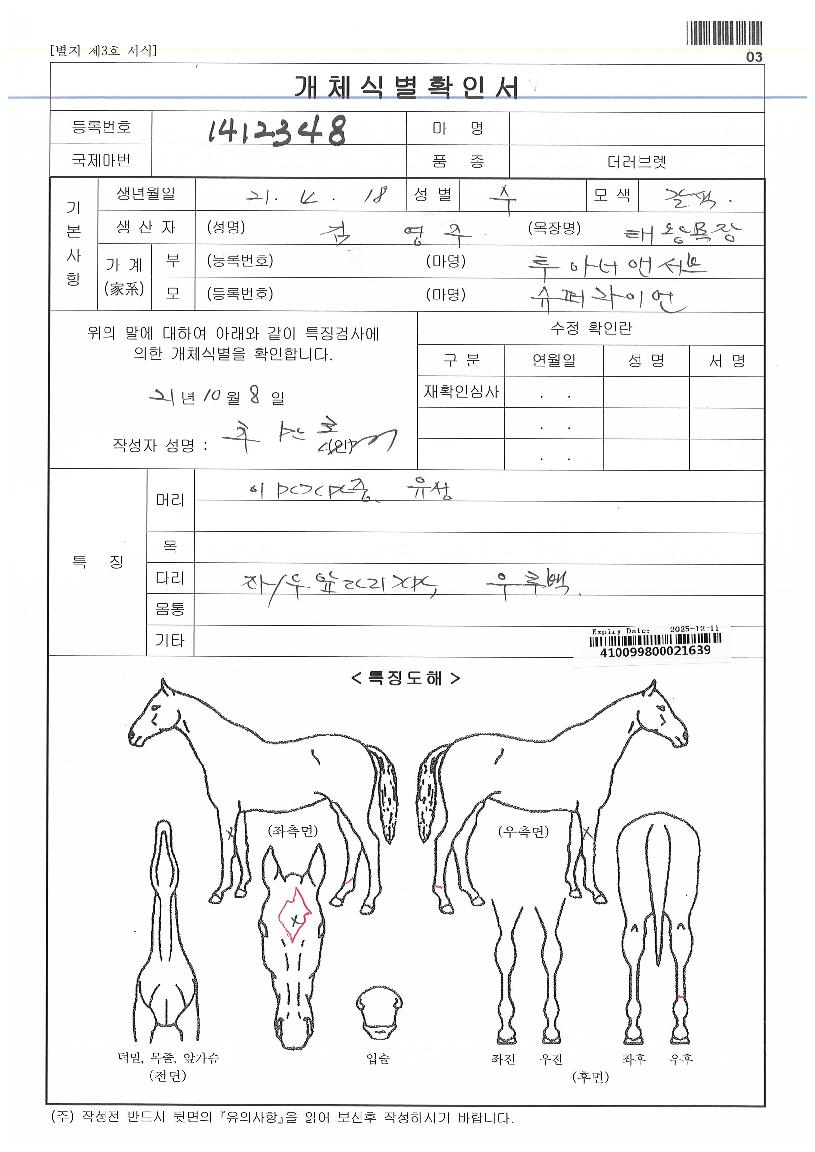 [별지 제3호 서식]
03
개체식별확인서
등록번호 1412348 마 명
국제마번 품 종 더러브렛
기본사항
생년월일 21. 4. 18 성 별 수 모 색 갈색.
생 산 자 (성명) 김 영 주 (목장명) 태왕목장
가 계 (家系) 부 (등록번호) (마명) 투아너앤서브
모 (등록번호) (마명) 슈퍼라이언
위의 말에 대하여 아래와 같이 특징검사에
의한 개체식별을 확인합니다.
21년 10월 8일
작성자 성명 : (인)
수정 확인란
구 분 연월일 성 명 서 명
재확인심사 . .
. .
. .
특 징
머리 유성
목
다리 좌/우앞다리 우후백.
몸통
기타
Expiry Date: 2025-12-11
410099800021639
< 특징도해 >
(좌측면) (우측면)
턱밑, 목줄, 앞가슴
(전면)
입술
좌전 우전 좌후 우후
(후면)
(주) 작성전 반드시 뒷면의 『유의사항』을 읽어 보신후 작성하시기 바랍니다.